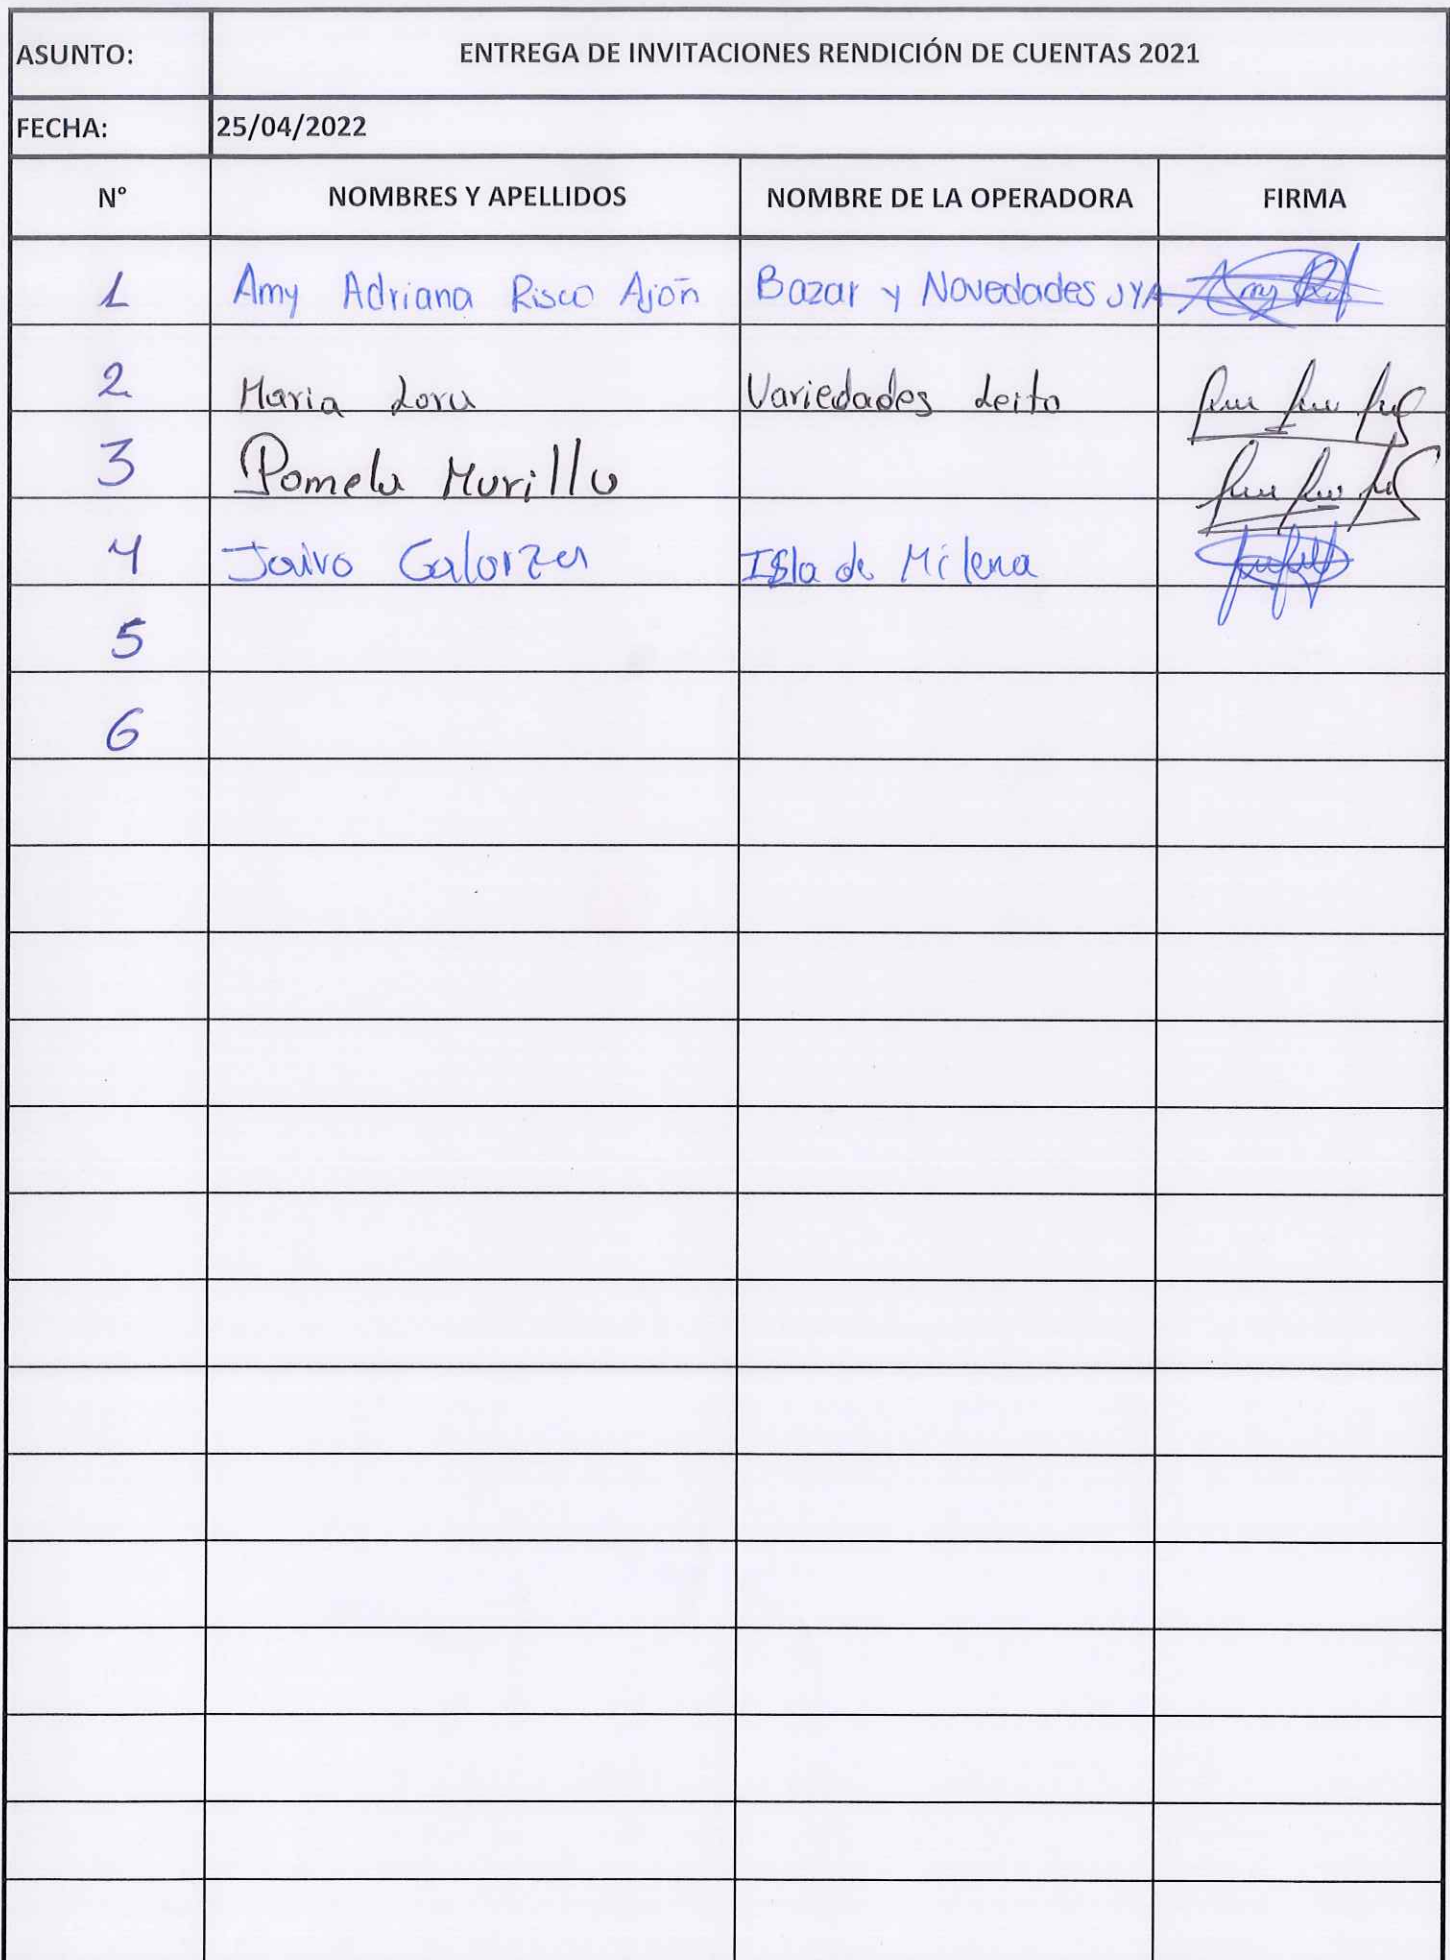 ASUNTO: ENTREGA DE INVITACIONES RENDICIÓN DE CUENTAS 2021
FECHA: 25/04/2022
N° NOMBRES Y APELLIDOS NOMBRE DE LA OPERADORA FIRMA
1 Amy Adriana Risco Ajón Bazar y Novedades JYA
2 Maria Loru Variedades Leito
3 Pamela Murillo
4 Jairo Galarza Isla de Milena
5
6